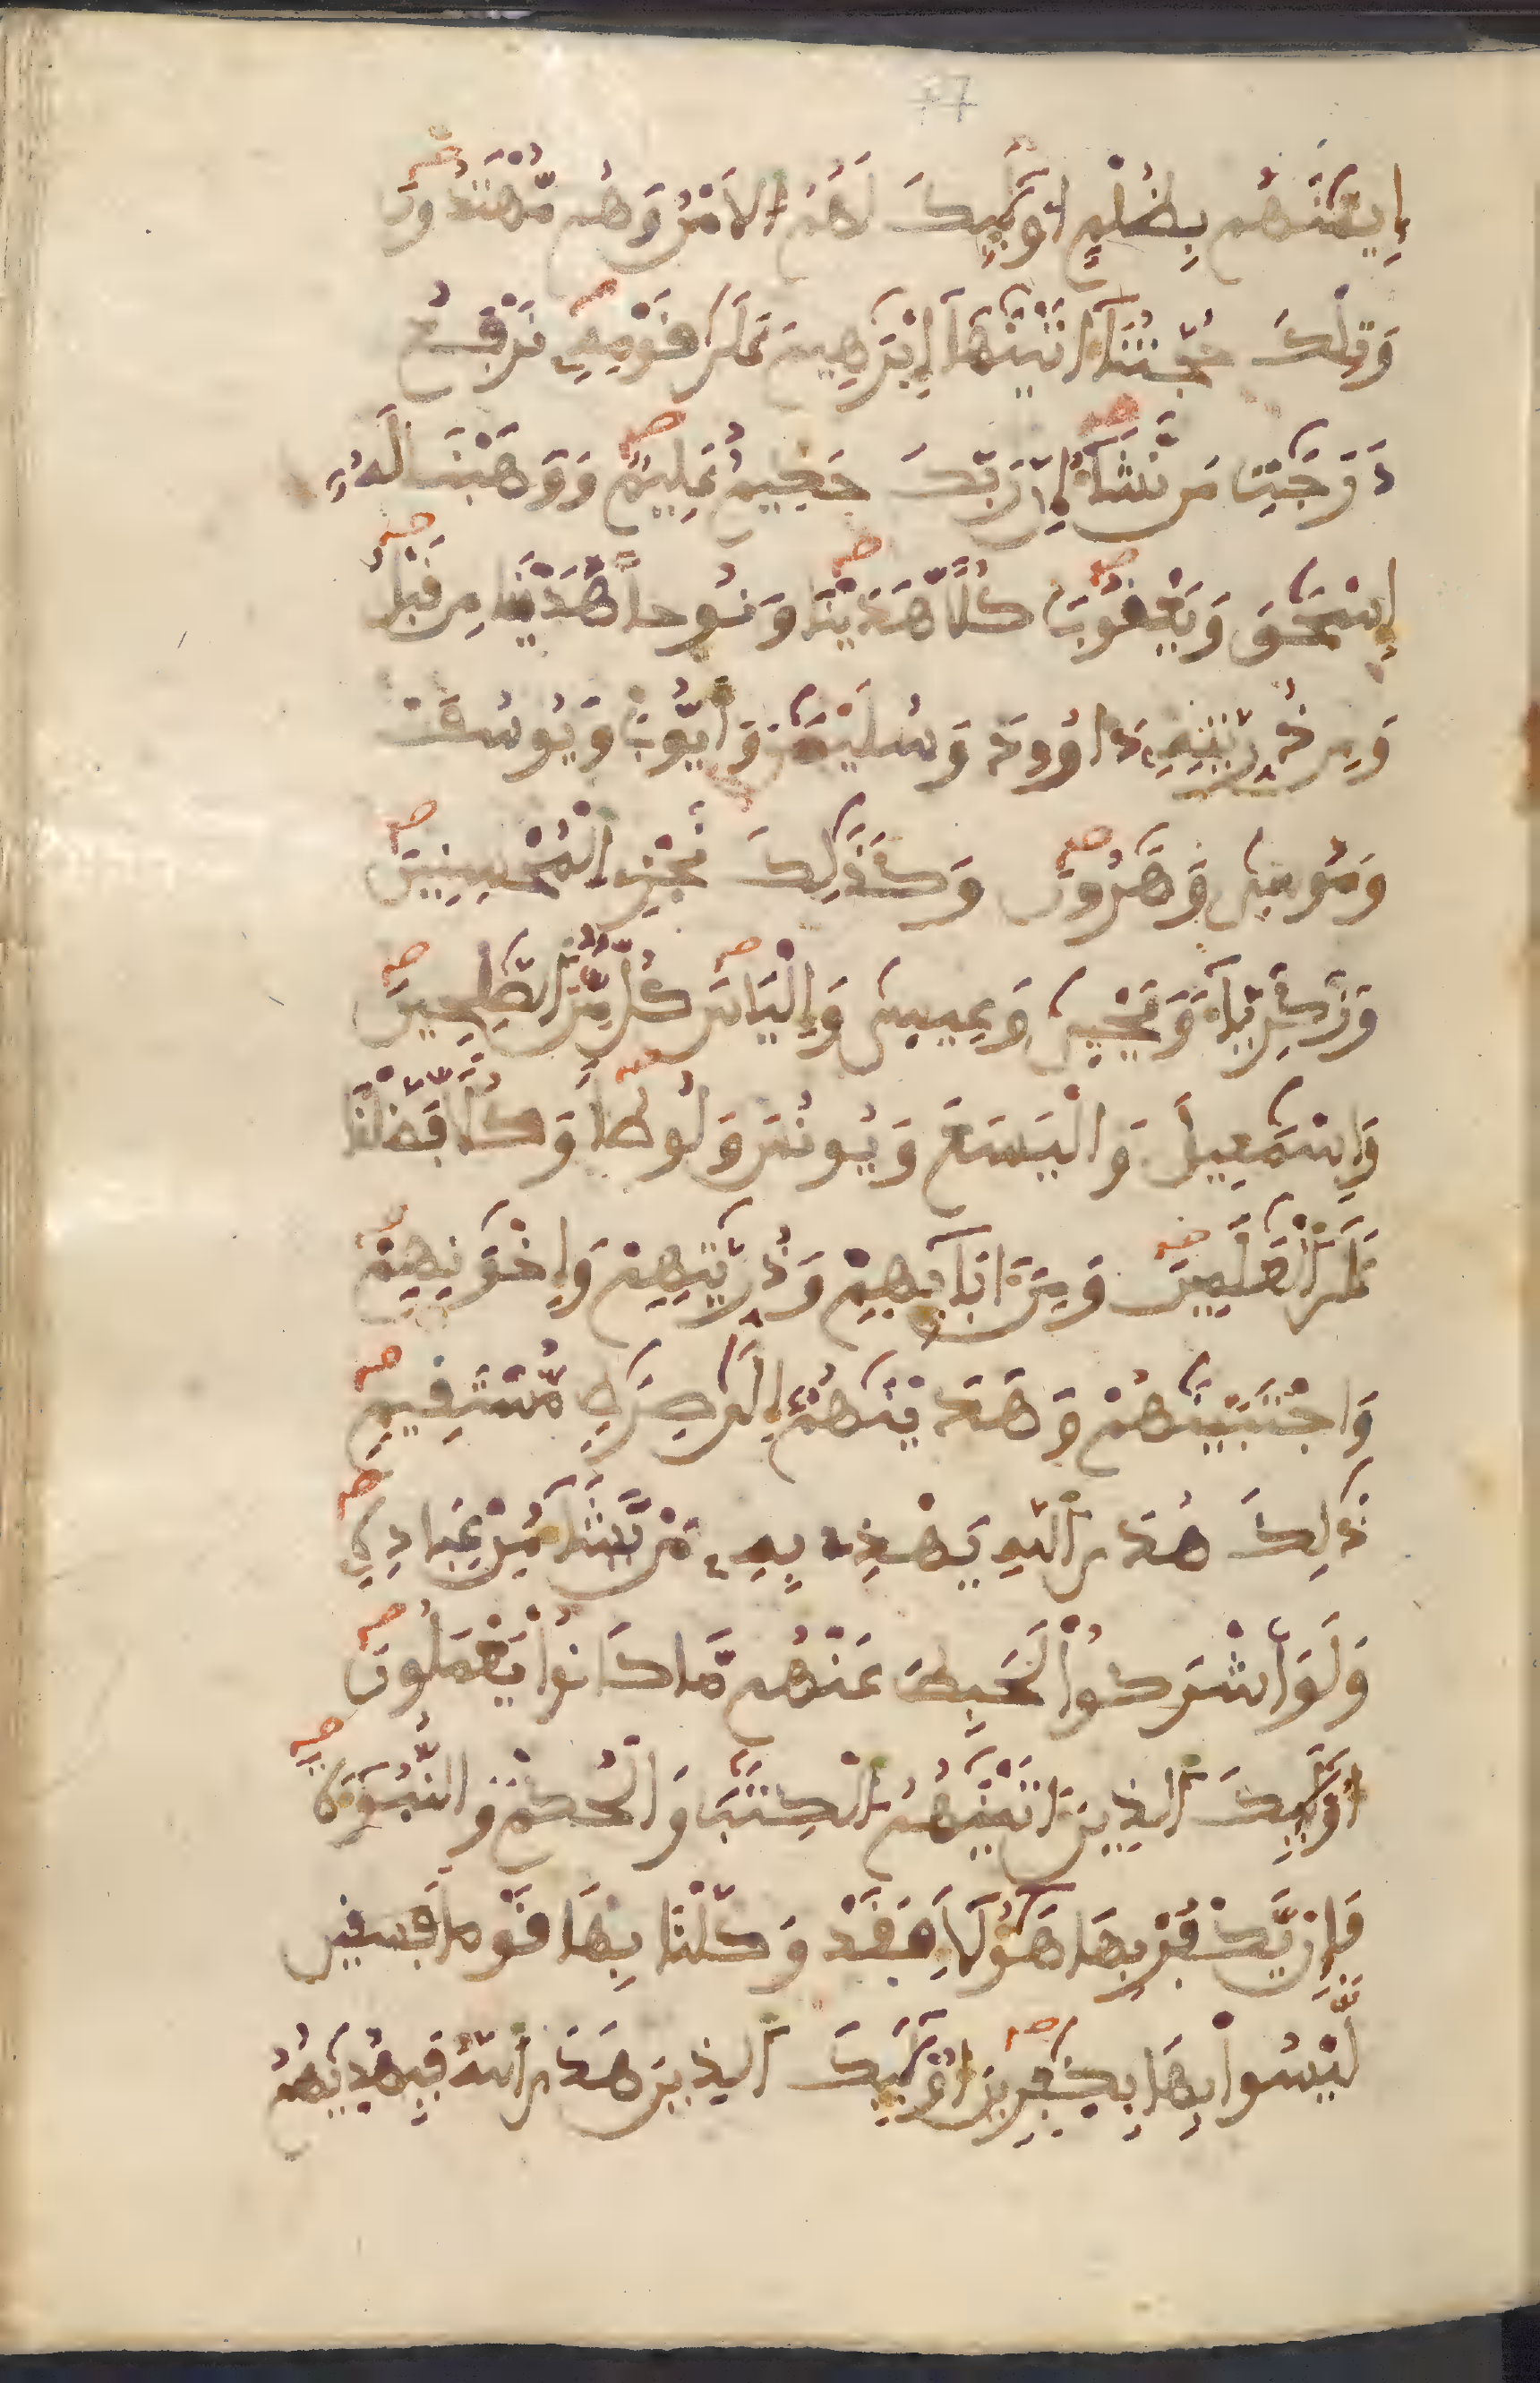 77
إِيمَٰنَهُم بِظُلْمٍ اُوْلَٰٓئِكَ لَهُمُ اُلَامْنُ وَهُم مُّهْتَدُونَ
وَتِلْكَ حُجَّتُنَآ ءَاتَيْنَٰهَآ إِبْرَٰهِيمَ عَلَىٰ قَوْمِهِۦ نَرْفَعُ
دَرَجَٰتِ مَن نَّشَآءُ إِنَّ رَبَّكَ حَكِيمٌ عَلِيمٌ وَوَهَبْنَا لَهُۥٓ
إِسْحَٰقَ وَيَعْقُوبَ كُلّاً هَدَيْنَا وَنُوحاً هَدَيْنَا مِن قَبْلُ
وَمِن ذُرِّيَّتِهِۦ دَاوُۥدَ وَسُلَيْمَٰنَ وَأَيُّوبَ وَيُوسُفَ
وَمُوسَىٰ وَهَٰرُونَ وَكَذَٰلِكَ نَجْزِے اِلْمُحْسِنِينَ
وَزَكَرِيَّآءَ وَيَحْيَىٰ وَعِيسَىٰ وَإِلْيَاسَ كُلٌّ مِّنَ اَلصَّٰلِحِينَ
وَإِسْمَٰعِيلَ وَالْيَسَعَ وَيُونُسَ وَلُوطاً وَكُلّاً فَضَّلْنَا
عَلَى اَلْعَٰلَمِينَ وَمِنَ ـاٰبَآئِهِمْ وَذُرِّيَّٰتِهِمْ وَإِخْوَٰنِهِمْ
وَاجْتَبَيْنَٰهُمْ وَهَدَيْنَٰهُمُۥٓ إِلَىٰ صِرَٰطٍ مُّسْتَقِيمٍ
ذَٰلِكَ هُدَى اَللَّهِ يَهْدِے بِهِۦ مَنْ يَّشَآءُ مِنْ عِبَادِهِۦ
وَلَوَ اَشْرَكُواْ لَحَبِطَ عَنْهُم مَّا كَانُواْ يَعْمَلُونَ
اُوْلَٰٓئِكَ اَلذِينَ ءَاتَيْنَٰهُمُ اُلْكِتَٰبَ وَالْحُكْمَ وَالنُّبُوٓءَةَ
فَإِنْ يَّكْفُرْ بِهَا هَٰٓؤُلَآءِ فَقَدْ وَكَّلْنَا بِهَا قَوْماً فسفىں
لَّيْسُواْ بِهَا بِكَٰفِرِينَ اُوْلَٰٓئِكَ اَلذِينَ هَدَى اَللَّهُ فَبِهُدَيٰهُمُ